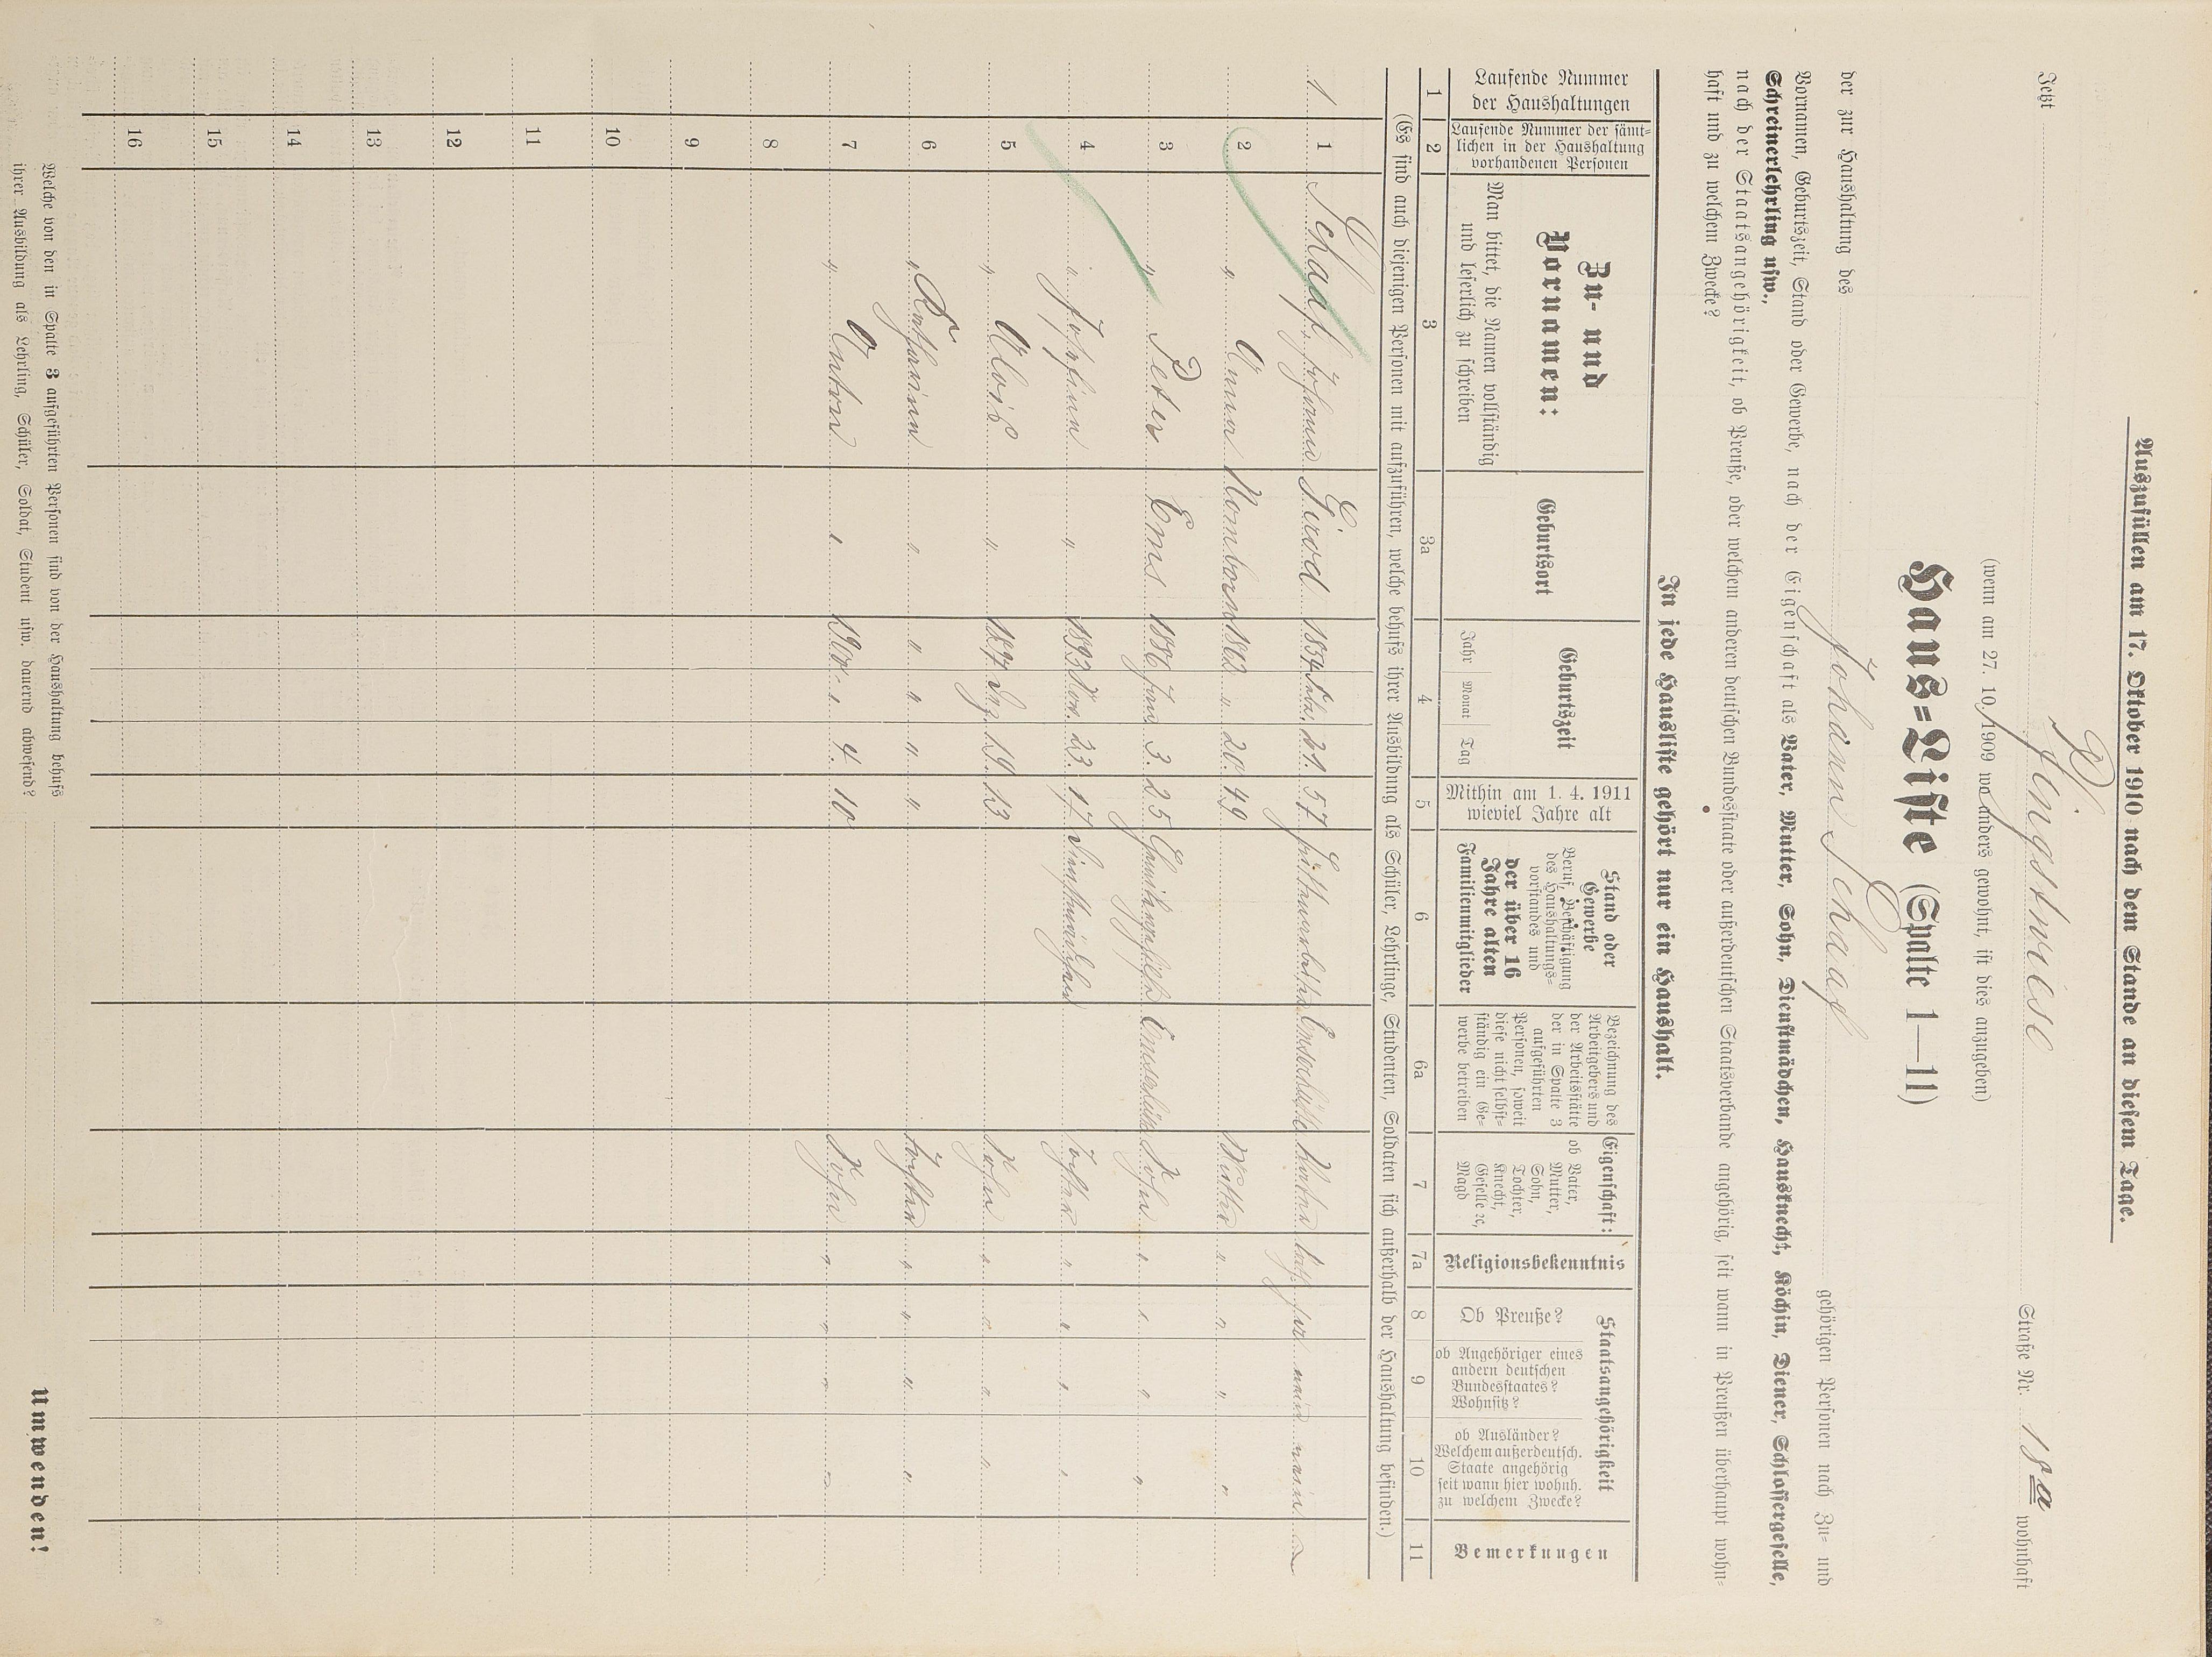 Auszufüllen am 17. Oktober 1910 nach dem Stande an diesem Tage.
Jetzt Pfingstwiese Straße Nr. 18a wohnhaft
(wenn am 27. 10. 1909 wo anders gewohnt, ist dies anzugeben)
Haus=Liste (Spalte 1—11)
der zur Haushaltung des Johann Schaaf gehörigen Personen nach Zu- und
Vornamen, Geburtszeit, Stand oder Gewerbe, nach der Eigenschaft als Vater, Mutter, Sohn, Dienstmädchen, Hausknecht, Köchin, Diener, Schlossergeselle,
Schreinerlehrling usw.,
nach der Staatsangehörigkeit, ob Preuße, oder welchem anderen deutschen Bundesstaate oder außerdeutschen Staatsverbande angehörig, seit wann in Preußen überhaupt wohn-
haft und zu welchem Zwecke?
In jede Hausliste gehört nur ein Haushalt.
Laufende Nummer der Haushaltungen
Laufende Nummer der sämt-lichen in der Haushaltung vorhandenen Personen
Zu- und Vornamen:
Man bittet, die Namen vollständig und leserlich zu schreiben
Geburtsort
Geburtszeit
Jahr Monat Tag
Mithin am 1. 4. 1911 wieviel Jahre alt
Stand oder Gewerbe
Beruf, Beschäftigung des Haushaltungs-vorstandes und der über 16 Jahre alten Familienmitglieder
Bezeichnung des Arbeitgebers und der Arbeitsstätte der in Spalte 3 aufgeführten Personen, soweit diese nicht selbst-ständig ein Ge-werbe betreiben
Eigenschaft:
ob Vater, Mutter, Sohn, Tochter, Knecht, Geselle ec, Magd
Religionsbekenntnis
Staatsangehörigkeit
Ob Preuße?
ob Angehöriger eines andern deutschen Bundesstaates? Wohnsitz?
ob Ausländer? Welchem außerdeutsch. Staate angehörig seit wann hier wohnh. zu welchem Zwecke?
Bemerkungen
1 2 3 3a 4 5 6 6a 7 7a 8 9 10 11
(Es sind auch diejenigen Personen mit aufzuführen, welche behufs ihrer Ausbildung als Schüler, Lehrlinge, Studenten, Soldaten sich außerhalb der Haushaltung befinden.)
1 1 Schaaf, Johann Girod 1854 21. 57 Hüttenarbeiter Emserhütte Vater kath. ja nein nein
2 " Anna Nomborn 1862 " 20. 49 Mutter " " " "
3 " Peter Ems 1886 Juni 3. 25 Emserhütte Sohn " " " "
4 " Josefine " 1893 Nov. 23. 17 Dienstmädchen Tochter " " " "
5 " Alois " 1897 Dez. 19. 13 Sohn " " " "
6 " Katharina " " " " " Tochter " " " "
7 " Anton " 1900 " 4. 10 Sohn " " " "
8
9
10
11
12
13
14
15
16
Welche von den in Spalte 3 aufgeführten Personen sind von der Haushaltung behufs
ihrer Ausbildung als Lehrling, Schüler, Soldat, Student usw. dauernd abwesend?
Umwenden!